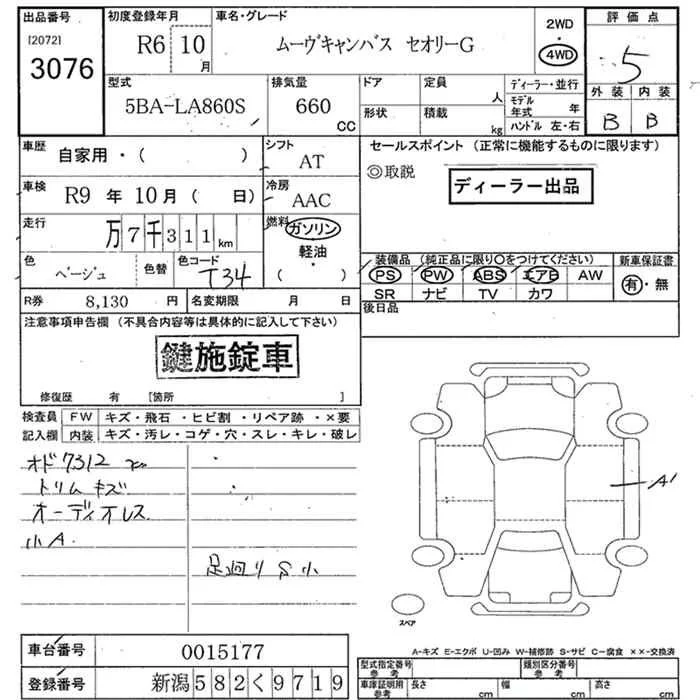 出品番号 初度登録年月 車名・グレード 2WD 評価点
[2072] R6 10月 ムーヴキャンバス セオリーG 4WD 5
3076
型式 排気量 ドア 定員 人 ディーラー・並行 外装 内装
5BA-LA860S 660 CC 形状 積載 kg モデル年式 年 B B
ハンドル 左・右
車歴 自家用・( ) シフト AT セールスポイント (正常に機能するものに限ります)
◎取説
車検 R9 年 10月 ( 日) 冷房 AAC ディーラー出品
走行 万7千311km 燃料 ガソリン
軽油・
( )
色 ベージュ 色替 色コード T34 装備品 (純正品に限り○をつけてください) 新車保証書
PS PW ABS エアB AW 有・無
R券 8,130 円 名変期限 月 日 SR ナビ TV カワ
後日品
注意事項申告欄 (不具合内容等は具体的に記入して下さい)
鍵施錠車
修復歴 有 [箇所 ]
検査員 FW キズ・飛石・ヒビ割・リペア跡・×要
記入欄 内装 キズ・汚レ・コゲ・穴・スレ・キレ・破レ
オド7312 km
トリムキズ
オーディオレス
小A
足廻りS小
A1
スペア
A-キズ E-エクボ U-凹み W-補修跡 S-サビ C-腐食 ××-交換済
車台番号 0015177 型式指定番号 参考 類別区分番号 参考
登録番号 新潟582く9719 車庫証明用 参考 長さ cm 幅 cm 高さ cm